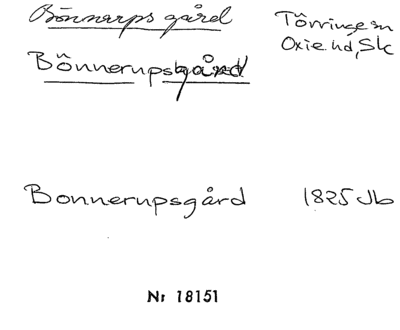 Bönnarps gård Törringe sn
Oxie hd, Sk
Bönnerupsgård
Bonnerupsgård 1825 Jb
Nr 18151